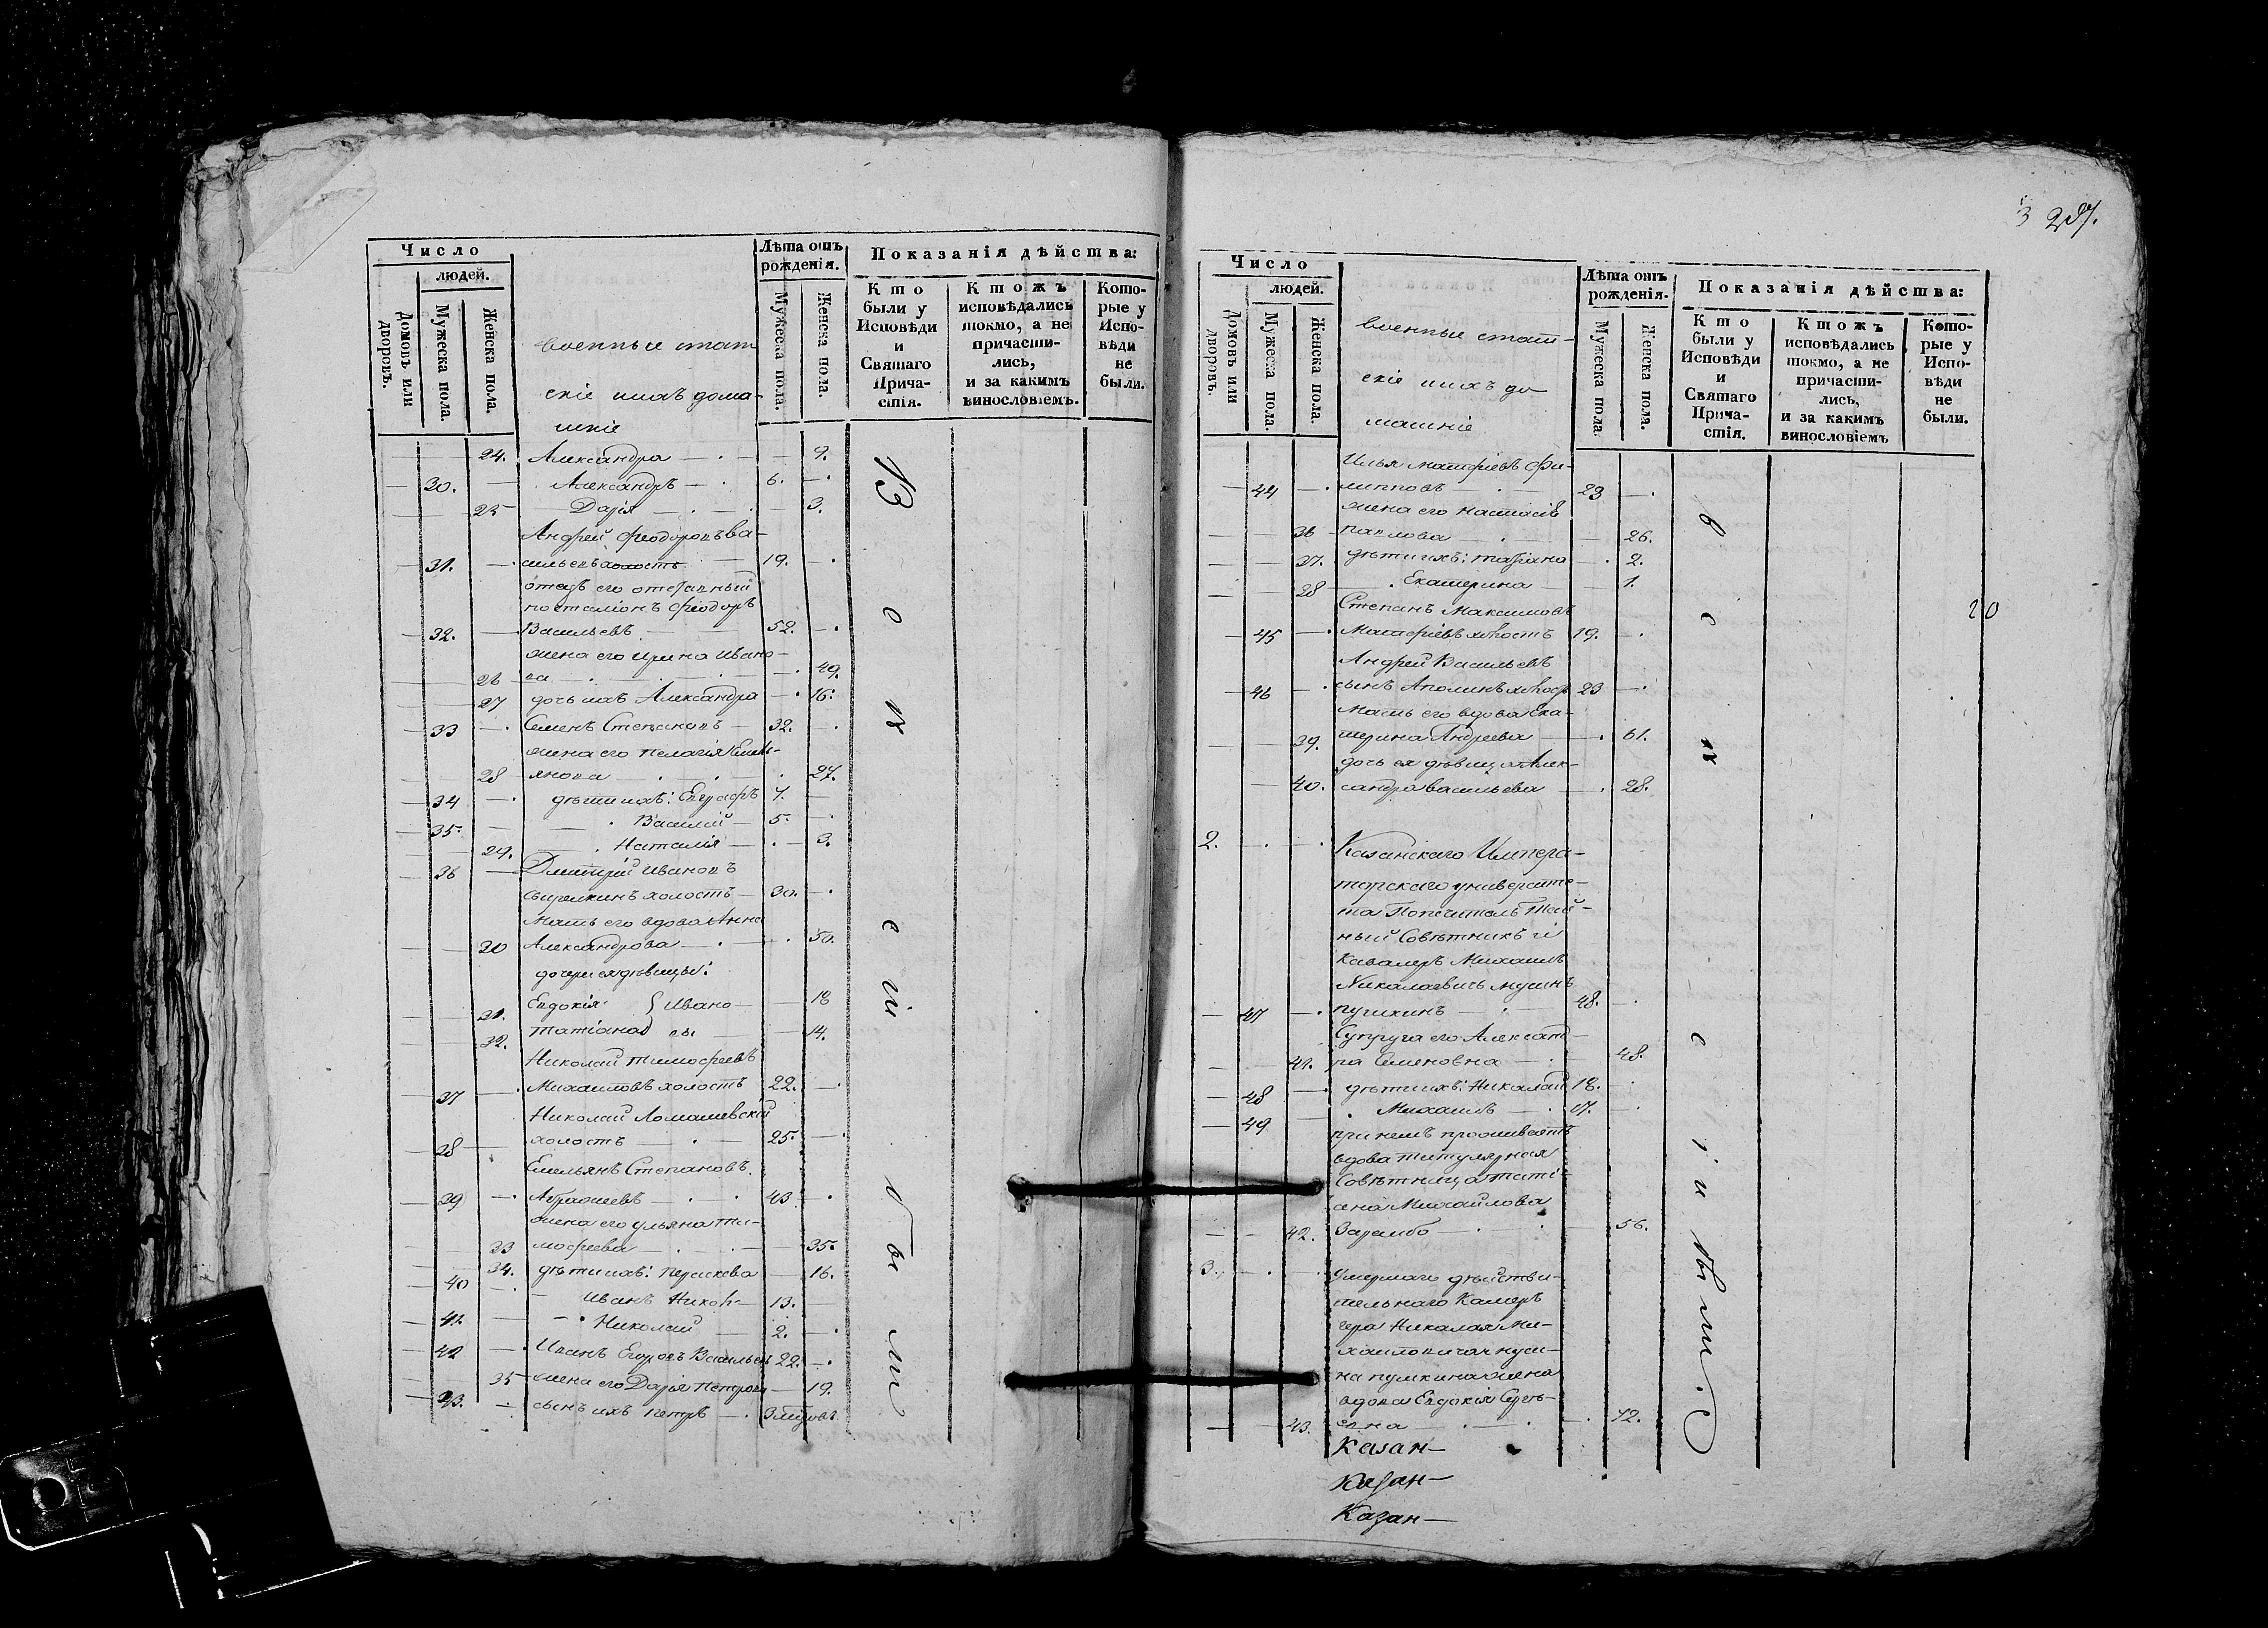 Число
людей.
Домовъ или дворовъ.
Мужеска пола.
Женска пола.
военные стат
скіе ихъ дома-
шніе
Лѣта отъ рожденія.
Мужеска пола.
Женска пола.
Показанія дѣйства:
Кто были у Исповѣди и Святаго Прича-стія.
Ктожъ исповѣдались токмо, а не причасти-лись, и за какимъ винословіемъ.
Кото-рые у Испо-вѣди не были.
24. Александра 9.
30. Александръ 6.
25 Дарія 3.
Андрей Феодоровъ Ва-
31. сильевъ холостъ 19.
отецъ его отставный
посталіонъ Феодоръ
32. Васильевъ 52.
жена его Ирина Ивано-
26 ва 49.
27 дочь ихъ Александра 16.
33 Семенъ Степановъ 32.
жена его Пелагія Емель-
28 янова 27.
34 дѣти ихъ: Евграфъ 7.
35. Василій 5.
29. Наталія 3.
36 Дмитрій Ивановъ
холостъ 30.
Мать его вдова Анна
30 Александрова 50.
дочери ея дѣвицы:
31. Евдокія Ивано- 18
32. Татіана вы 14.
Николай Тимофеевъ
37 Михаиловъ холостъ 22.
Николай Ломашевскій
38 холостъ 25.
Емельянъ Степановъ
39 43.
жена его Ульяна Ти-
33 мофеева 35.
34. дѣти ихъ: Параскева 16.
40 Иванъ 13.
41 Николай 2.
42 Иванъ Егоровъ Васильевъ 22.
35 жена его Дарія Петрова 19.
43. сынъ ихъ Петръ
в с ѣ
с і и
б ы л и
3 287.
Число
людей.
Домовъ или дворовъ.
Мужеска пола.
Женска пола.
военные стат-
скіе ихъ до
машніе
Лѣта отъ рожденія.
Мужеска пола.
Женска пола.
Показанія дѣйства:
Кто были у Исповѣди и Святаго Прича-стія.
Ктожъ исповѣдались токмо, а не причасти-лись, и за какимъ винословіемъ
Кото-рые у Испо-вѣди не были.
Илья Матфіевъ Фи-
44 липповъ 23
жена его Настасія
36 Павлова 26.
37. дѣти ихъ: Татіана 2.
38 Екатерина 1.
Степанъ Максимовъ
45 Матфіевъ холостъ 19.
Андрей Васильевъ
46 сынъ 23
Мать его вдова Ека-
39. терина Андреева 61.
дочь ея дѣвица Алек-
40. сандра Васильева 28.
2. Казанскаго Импера-
торскаго университе-
та Попечитель Тай-
ный Совѣтникъ и
Кавалеръ Михаилъ
Николаевичъ Мусинъ
47 Пушкинъ 48.
Супруга его Александ-
41. ра Семеновна 48.
48 дѣти ихъ: Николай 18.
49 Михаилъ 17.
при немъ проживаетъ
вдова титулярная
Совѣтница Тати-
ана Михайлова
42. Зарембо 56.
3. Умершаго дѣйстви-
тельнаго Камеръ
гера Николая Ми-
хаиловича Муси-
на Пушкина жена
вдова Евдокія Сергѣ-
43. евна 72.
Казан-
Казан-
Казан-
в с ѣ с і и были.
20